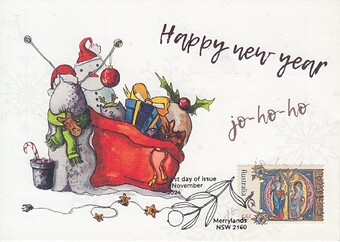 Happy new year
jo-ho-ho
First day of issue
November
2024
Merrylands
NSW 2160
Australia